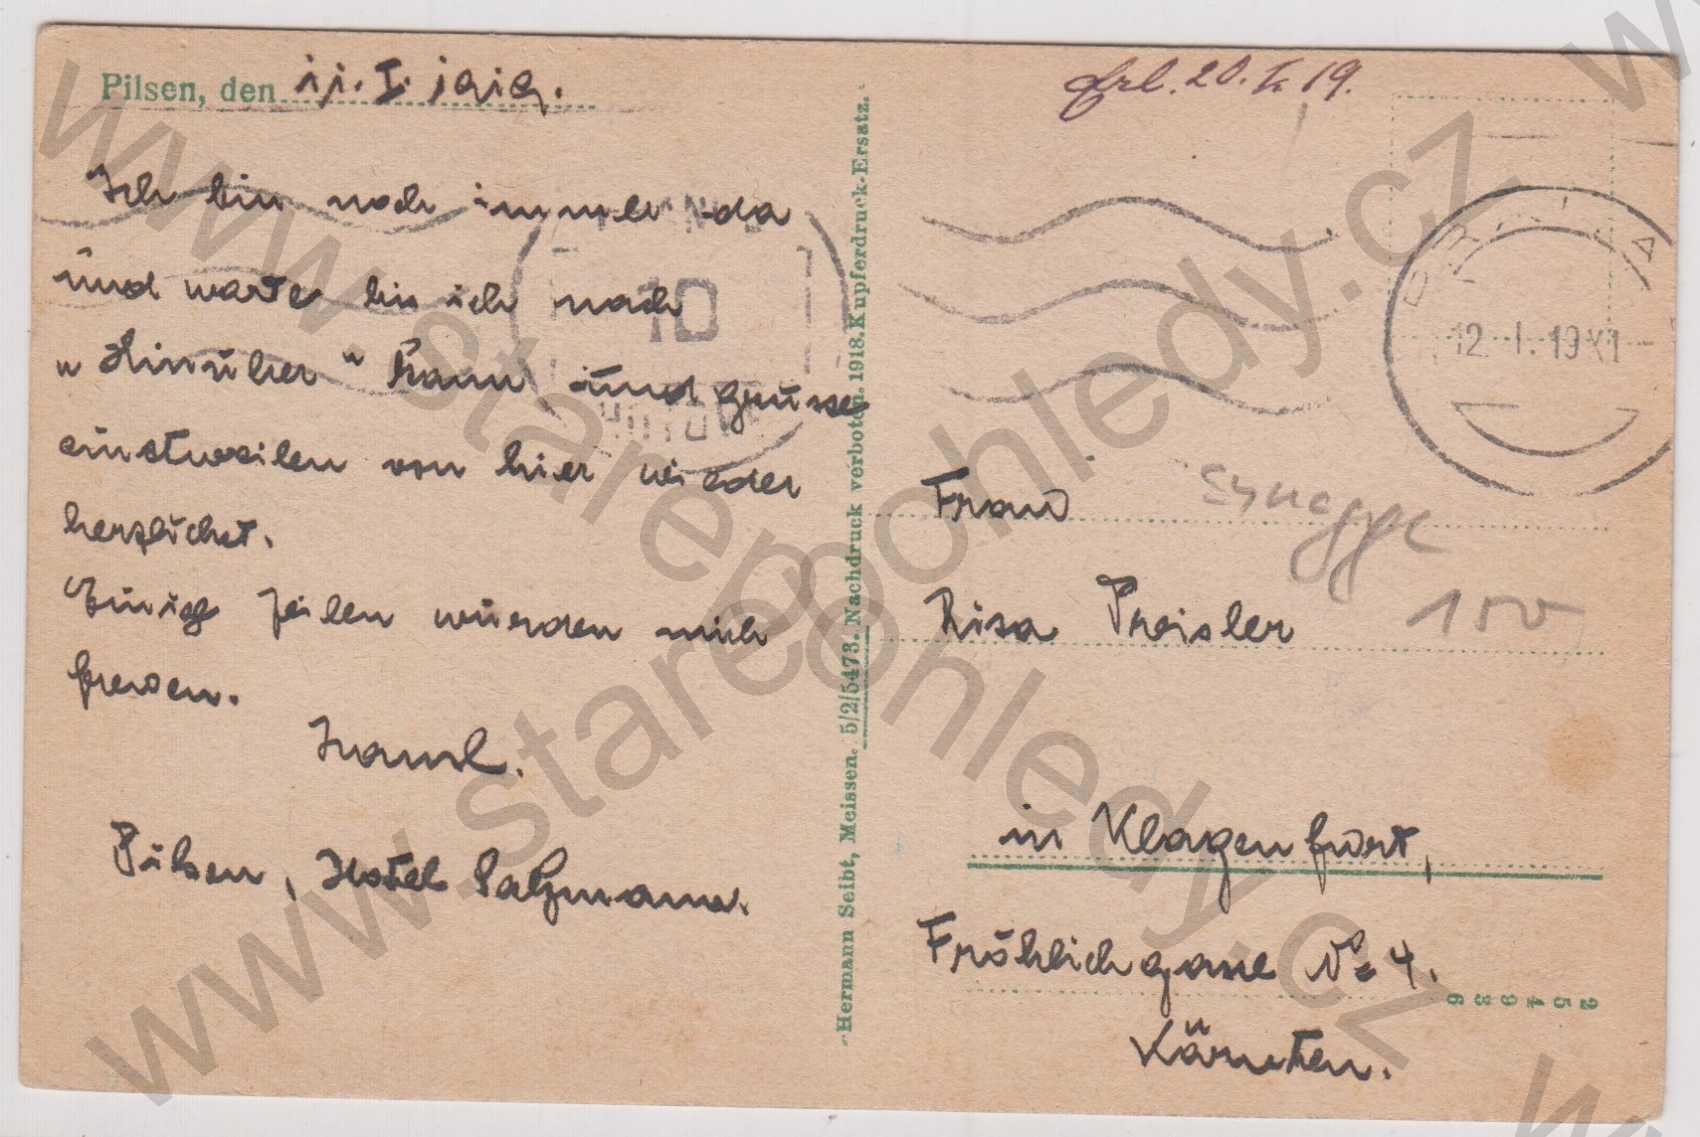 Pilsen, den 11. I. 1919.
Ich bin noch immer da
und warte bis ich nach
„Hinüber" kann und grüsse
einstweilen von hier wieder
herzlichst.
Einige Zeilen würden mich
freuen.
Pilsen, Hotel Salzmann.
Hermann Seibt, Meissen. 5/2/5473. Nachdruck verboten. 1918. Kupferdruck-Ersatz.
erl. 20. I. 19.
10
12. I. 19 XI
Synagoge
150
Frau
Risa Preisler
in Klagenfurt,
Fröhlichgasse No 4.
Kärnten.
254936
www.starepohledy.cz
www.starepohledy.cz